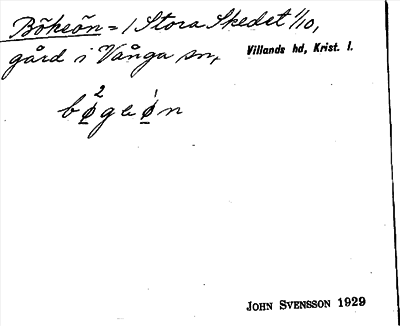 Bökeön = 1 Stora Skedet 1/10,
gård i Vånga sn,
Villands hd, Krist. l.
JOHN SVENSSON 1929